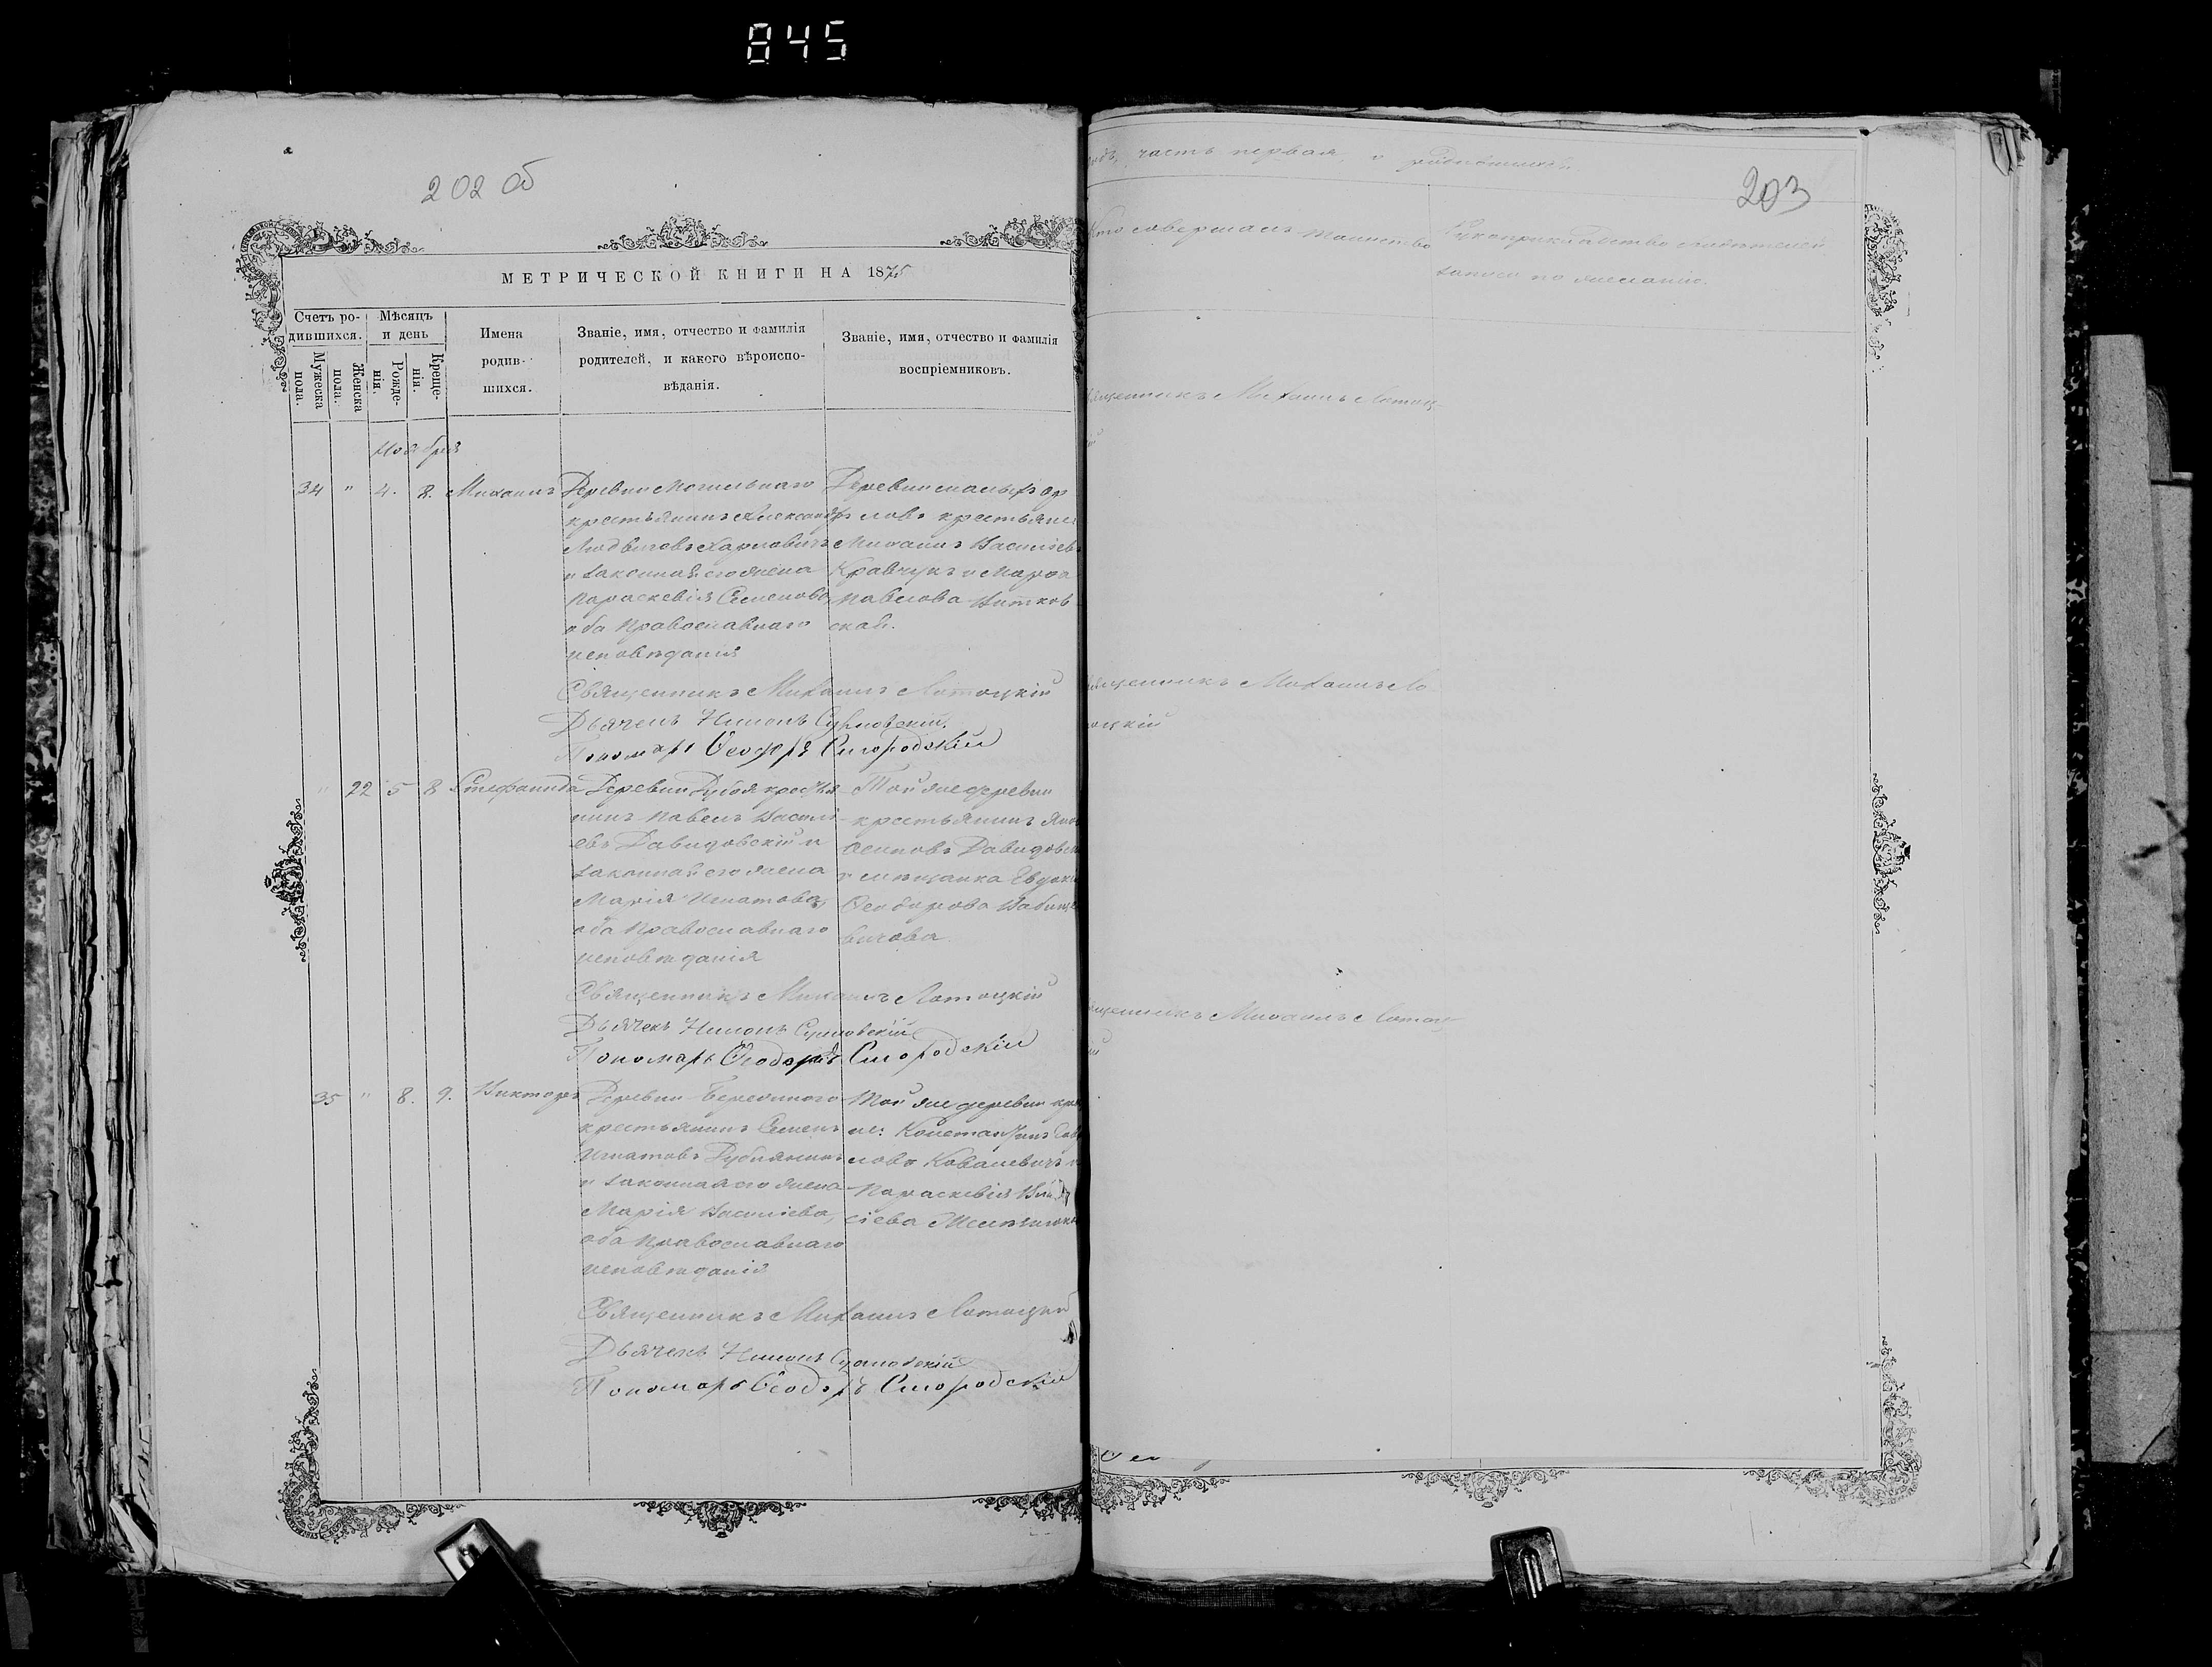 845
202 об
МЕТРИЧЕСКОЙ КНИГИ НА 1875
Счетъ ро-
дившихся.
Мужеска
пола.
Женска
пола.
Мѣсяцъ
и день
Рожде-
нія.
Креще-
нія.
Имена
родив-
шихся.
Званіе, имя, отчество и фамилія
родителей, и какого вѣроиспо-
вѣданія.
Званіе, имя, отчество и фамилія
воспріемниковъ.
Ноября
34 " 4. 8. Михаилъ
Деревни Могильнаго
крестьянинъ Александръ
Людвиговъ Карповичъ
и законная его жена
Параскевія Семенова,
оба Православнаго
исповѣданія
Деревни
ловъ крестьянин
Михаилъ Васильевъ
Кравчукъ и Марѳа
Павлова Витков
ская.
Священникъ Михаилъ Лотоцкій
Дьячекъ
Пономарь Ѳеодоръ Смородскій
" 22 5 8 Стефанида
Деревни Дубья кресть
нинъ Павелъ Василі
евъ Давидовскій и
законная его жена
Марія Игнатова,
оба Православнаго
исповѣданія
Той же деревни
крестьянинъ
Осиповъ Давидовс
и мѣщанка Евдоки
Ѳеодорова
вичова
Священникъ Михаилъ Лотоцкій
Дьячекъ
Пономарь Ѳеодоръ Смородскій
35 " 8. 9. Викторъ
Деревни
крестьянинъ Семенъ
Игнатовъ
и законная его жена
Марія Василіева,
оба Православнаго
исповѣданія
Той же деревни кре
Константинъ
ловъ Ковалевичъ и
Параскевія
сіева
Священникъ Михаилъ Лотоцкій
Дьячекъ
Пономарь Ѳеодоръ Смородскій
203
годъ, часть первая, о родившихся.
Кто совершалъ таинство
Рукоприкладство свидѣтелей
записи по желанію.
Священникъ Михаилъ Лотоц
кій
Священникъ Михаилъ Ло
тоцкій
Священникъ Михаилъ Лотоц
кій